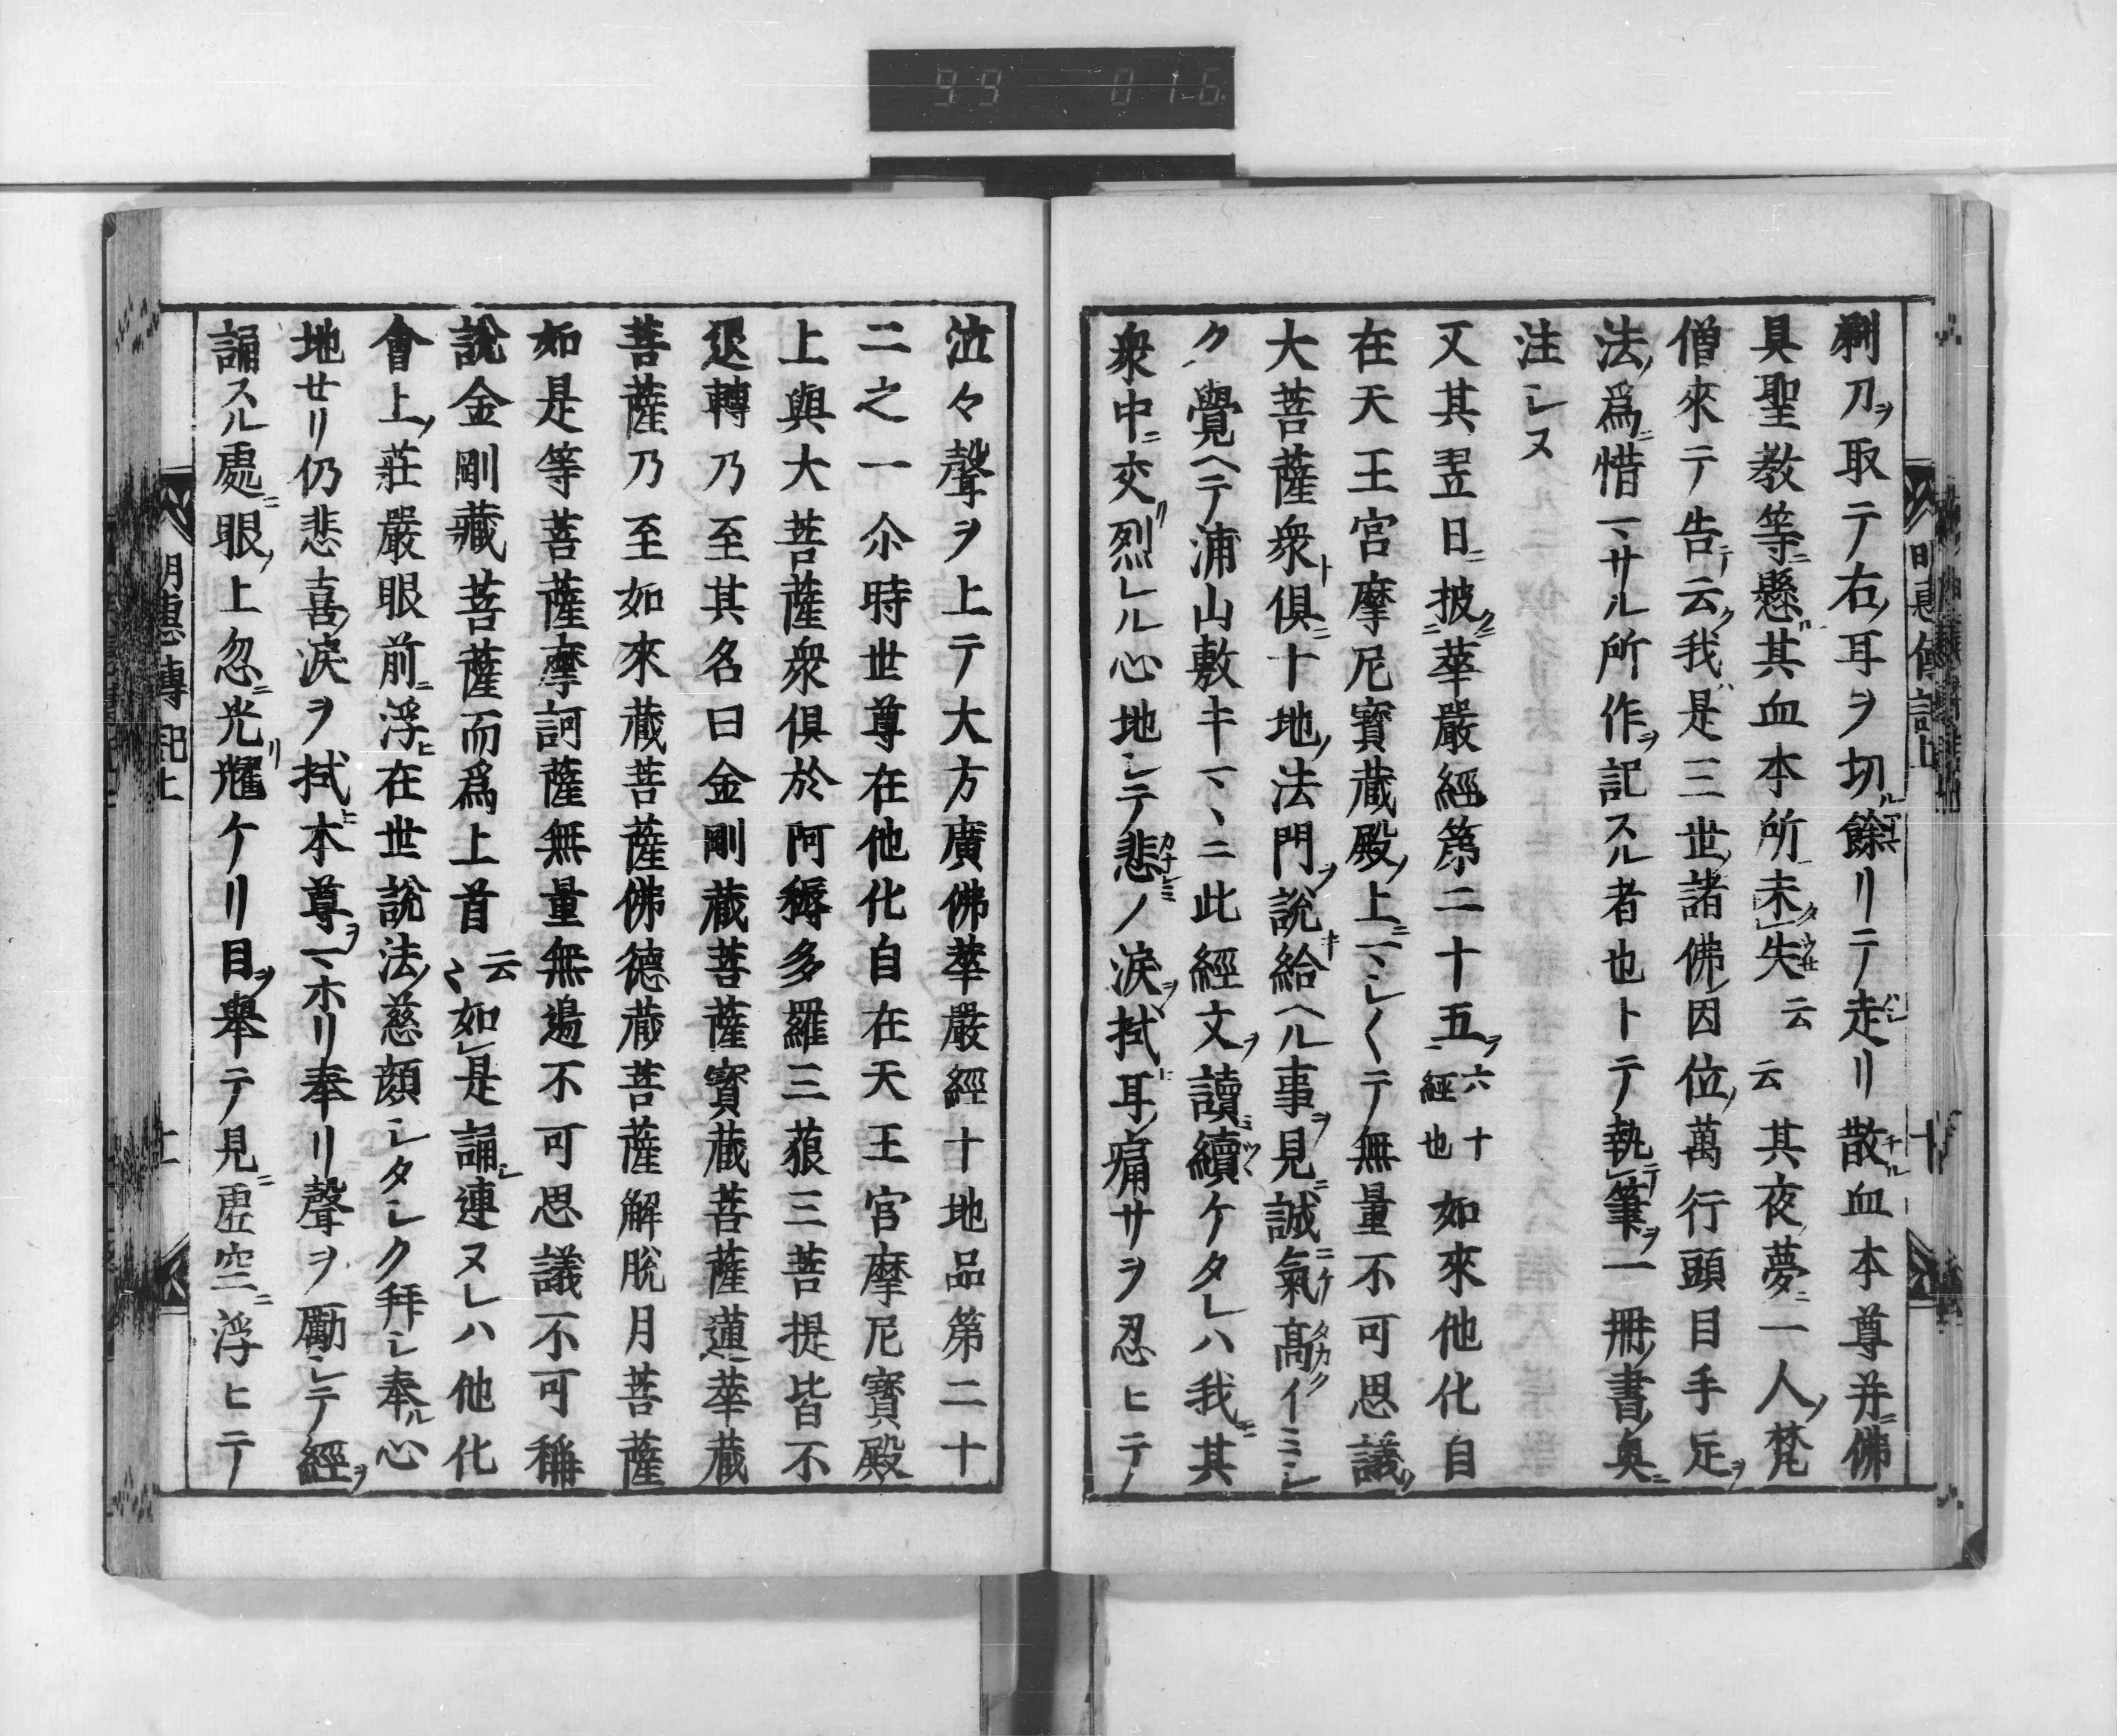 99 016
剃刀ヲ取テ右ノ耳ヲ切ル餘リニテ走リ散ル血本尊并ニ佛
具聖教等ニ懸ル其血本所未タ失云云其夜夢ニ一人ノ梵
僧來テ告テ云ク我ハ是三世ノ諸佛ノ因位ノ萬行頭目手足ヲ
法ノ爲ニ惜マサル所作ヲ記スル者也トテ執テ筆ヲ一冊ノ書ノ奥ニ
注シヌ
又其翌日ニ披クニ華嚴經第二十五ヲ六十經也如來他化自
在天王宮摩尼寶藏殿ノ上ニマシ〱テ無量不可思議ノ
大菩薩衆ト俱ニ十地ノ法門ヲ說キ給ヘル事ヲ見ニ誠ニ氣ケ高クイミシ
ク覺ヘテ浦山敷キマヽニ此經文ヲ讀ミ續ツヽケタレハ我ニ其
衆中ニ交リ烈レル心地シテ悲シミノ淚ヲ拭ヒ耳ノ痛サヲ忍ヒテ
泣々聲ヲ上テ大方廣佛華嚴經十地品第二十
二之一尒時世尊在他化自在天王宮摩尼寶殿
上與大菩薩衆俱於阿耨多羅三藐三菩提皆不
退轉乃至其名曰金剛藏菩薩寳藏菩薩蓮華藏
菩薩乃至如來藏菩薩佛德藏菩薩解脫月菩薩
如是等菩薩摩訶薩無量無邊不可思議不可稱
說金剛藏菩薩而爲上首云〻如是誦シ連ヌレハ他化
會上ノ莊嚴眼前ニ浮ヒ在世說法ノ慈顏シタシク拜シ奉ル心
地セリ仍悲喜ノ淚ヲ拭ヒ本尊ヲマホリ奉リ聲ヲ勵シテ經ヲ
誦スル處ニ眼ノ上忽ニ光リ耀ケリ目ヲ舉テ見ニ虛空ニ浮ヒテ
明惠傳記上